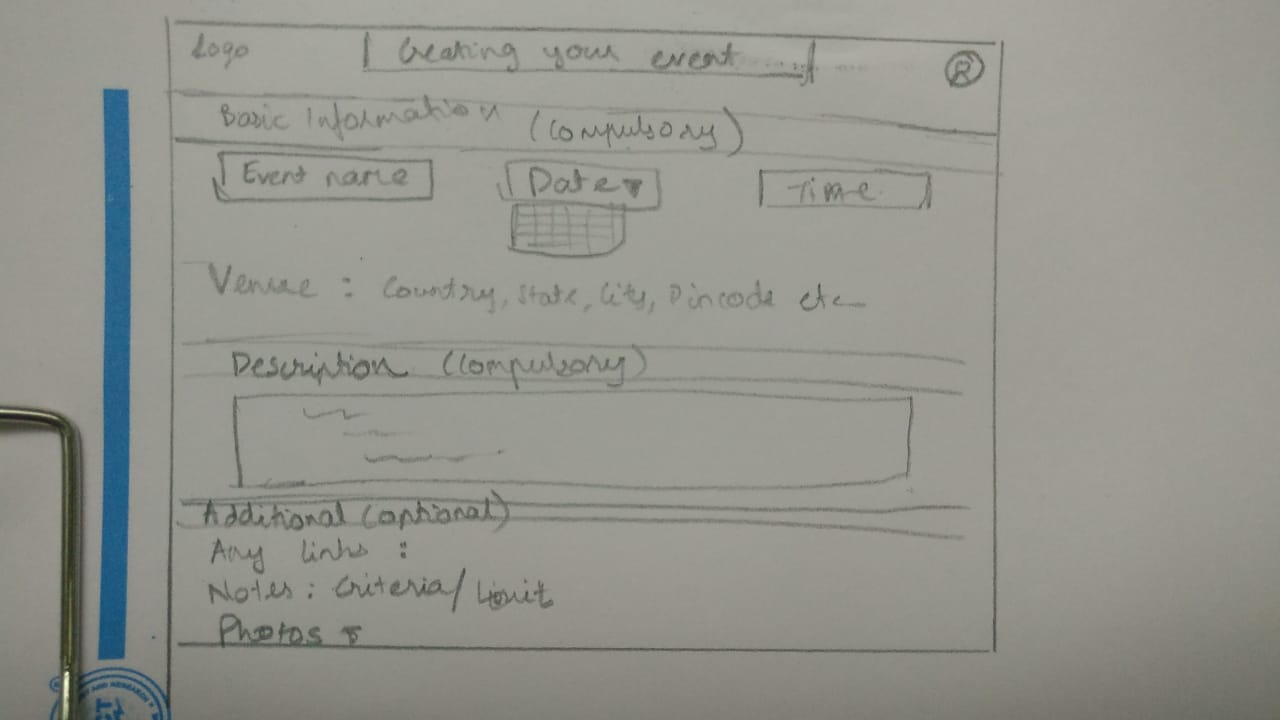 Logo
Creating your event
R
Basic Information (Compulsory)
Event name
Date
Time
Venue : Country, State, City, Pincode etc
Description (Compulsory)
Additional (optional)
Any links :
Notes : Criteria/Limit
Photos
AND RESEARCH